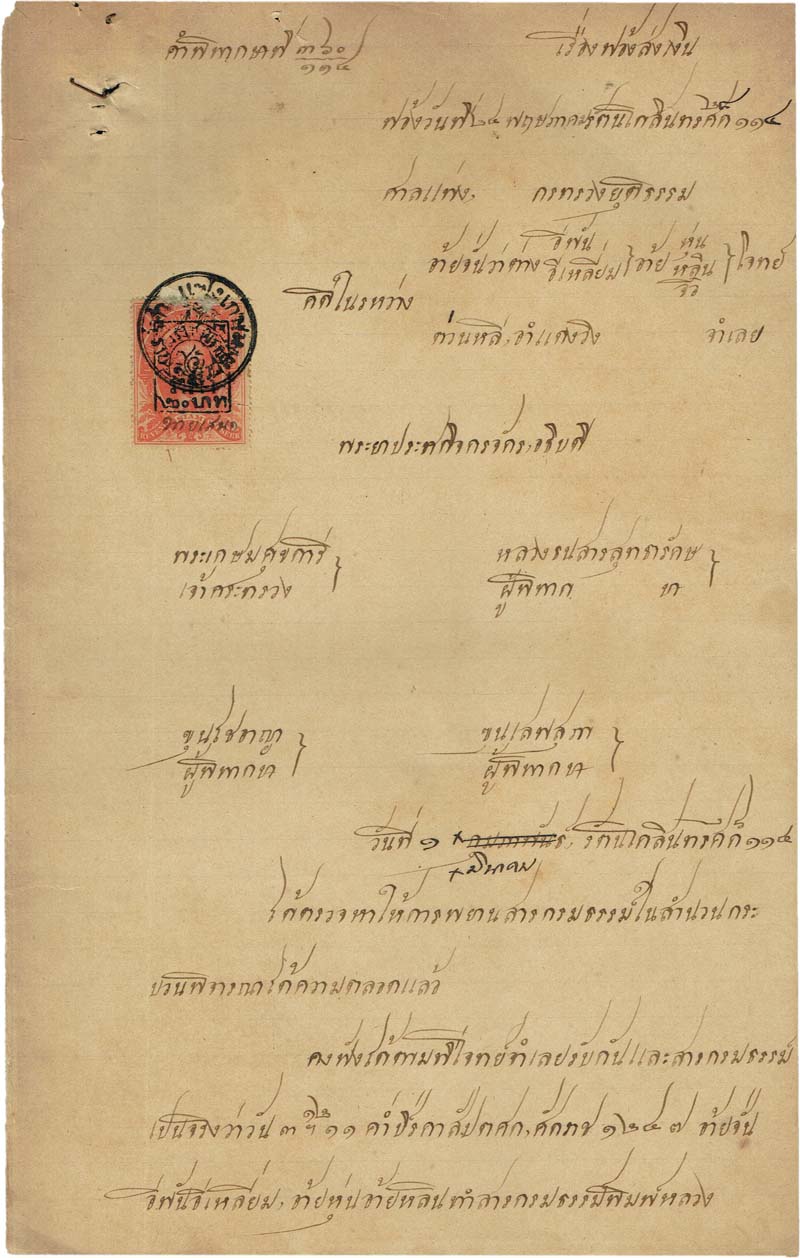 คำพิพากษาที่ ๓๖๐/๑๑๔ เรื่องฟ้องส่งเงิน
ฟ้องวันที่ ๒๔ พฤษภาคม รัตนโกสินทรศก๎ ๑๑๔
ศาลแพ่ง, กระทรวงยุติธรรม
คดีในรหว่าง อ้ายจั่นว่าต่าง อีพัน อีเหลี่ยม อ้าย หุ่น หลิน จิ๋ว โจทย์
ก่วนหลี, อำแดงวิง จำเลย
๒๐ บาท
พระยาประเสริจกรจักร, อธิบดี
พระเกษมศุขการี หลวงธนสารสุทธารักษ
เจ้ากระทรวง ผู้พิพากษา
ขุนโชตาญา ขุนเลพสุภา
ผู้พิพากษา ผู้พิพากษา
วันที่ ๑ กุมภาพันธ์, รัตนโกสินทรศก๎ ๑๑๔
มีนาคม
ได้ตรวจหาให้การพยานสารกรมธรรม์ในสำนวนกระ
บวนพิจารณาได้ความตลอดแล้ว
คงฟังได้ตามที่โจทย์จำเลยรับกันแลสารกรมธรรม์
เปนจริงว่าวัน ๓ ฯ ๑๑ ค่ำ ปีรกาสัปตศก, ศักราช ๑๒๔๗ อ้ายจั่น
อีพันอีเหลี่ยม, อ้ายหุ่นอ้ายหลินทำสารกรมธรรม์พิมพ์หลวง